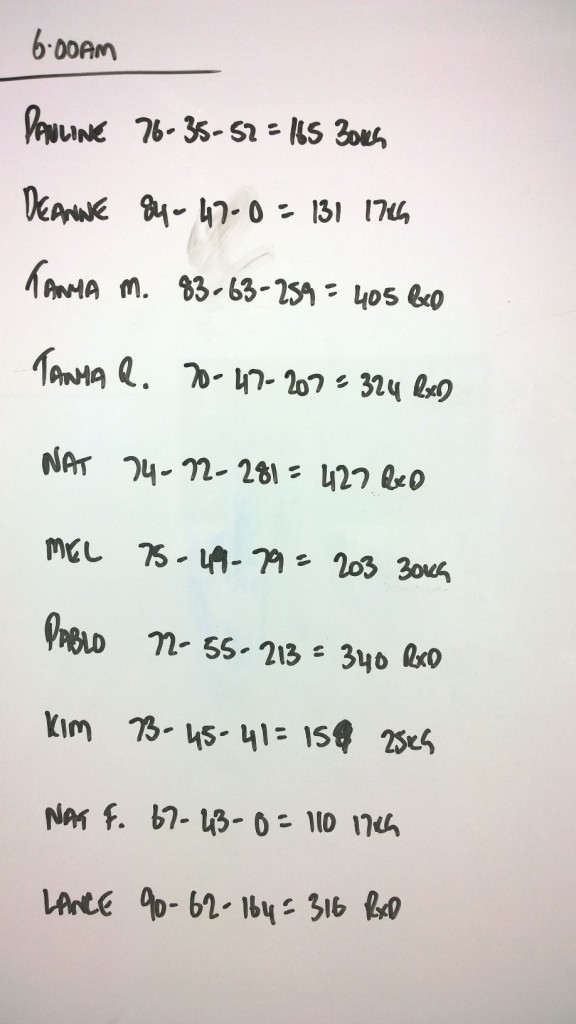 6.00AM
PAULINE 76-35-52 = 165 30KG
DEANNE 84-47-0 = 131 17KG
TANYA M. 83-63-259 = 405 RxD
TANYA R. 70-47-207 = 324 RxD
NAT 74-72-281 = 427 RxD
MEL 75-49-79 = 203 30KG
PABLO 72-55-213 = 340 RxD
KIM 73-45-41 = 159 25KG
NAT F. 67-43-0 = 110 17KG
LANCE 90-62-164 = 316 RxD